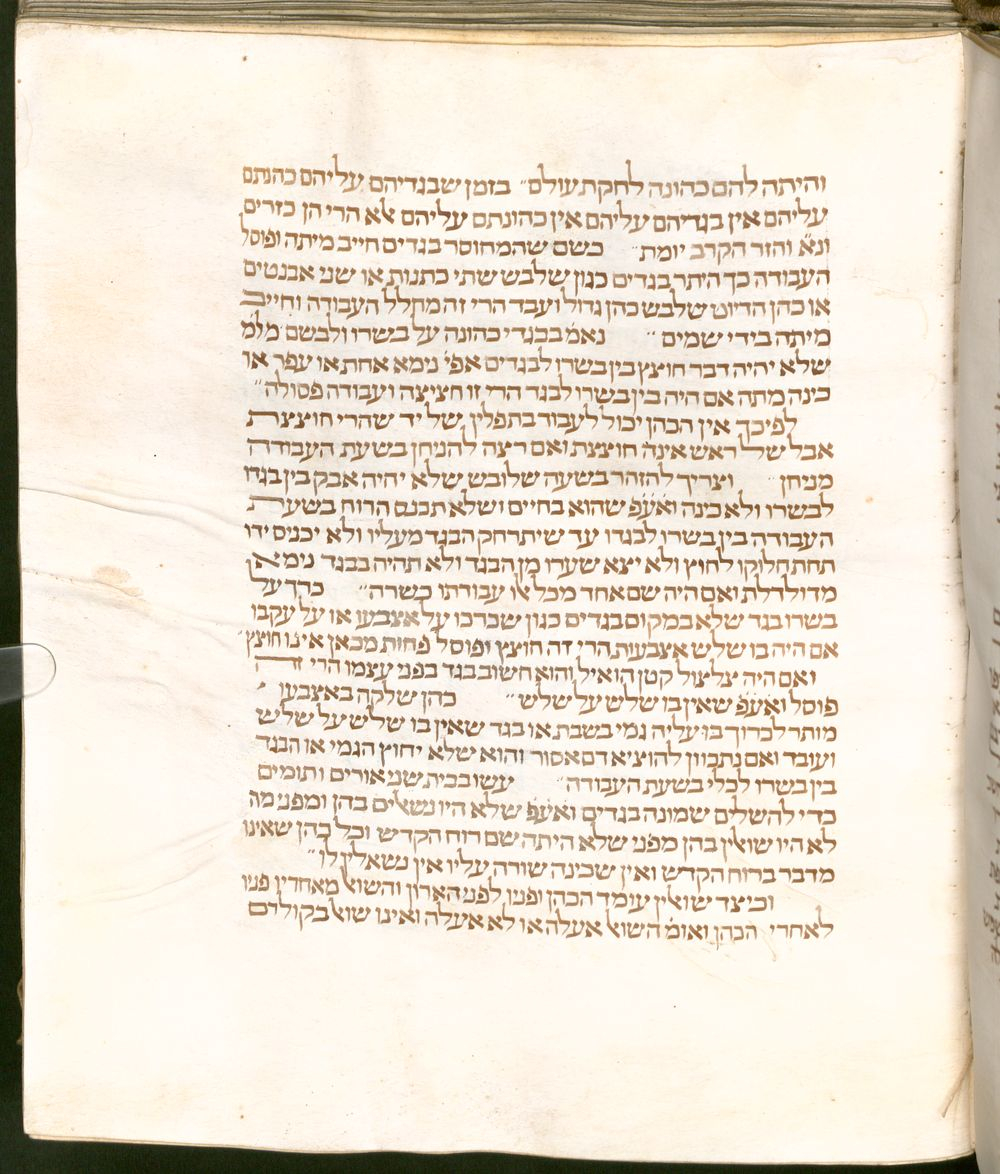 והיתה להם כהונה לחקת עולם״ בזמן שבגדיהם עליהם כהנתם
עליהם אין בגדיהם עליהם אין כהונתם עליהם אלא הרי הן כזרים
ונא׳ והזר הקרב יומת״ כשם שהמחוסר בגדים חייב מיתה ופוסל
העבודה כך היתר בגדים כגון שלבש שתי כתנות או שני אבנטים
או כהן הדיוט שלבש כהן גדול ועבד הרי זה מחלל העבודה וחייב
מיתה בידי שמים״ נאמ׳ בבגדי כהונה על בשרו ולבשם מלמ׳
שלא יהיה דבר חוצץ בין בשרו לבגדים אפי׳ נימא אחת או עפר או
כינה מתה אם היה בין בשרו לבגד הרי זו חציצה ועבודה פסולה״
לפיכך אין הכהן יכול לעבוד בתפלין של יד שהרי חוצצת
אבל של ראש אינה חוצצת ואם רצה להניחן בשעת העבודה
מניחן״ וצריך להזהר בשעה שלובש שלא יהיה אבק בין בגדו
לבשרו ולא כינה ואע״פ שהוא בחיים ושלא תכנס הרוח בשעת
העבודה בין בשרו לבגדו עד שיתרחק הבגד מעליו ולא יכניס ידו
תחת חלוקו לחוץ ולא יצא שערו מן הבגד ולא תהיה בבגד נימא
מדולדלת ואם היה שם אחד מכל אלו עבודתו כשרה״ כרך על
בשרו בגד שלא במקום בגדים כגון שכרכו על אצבעו או על עקבו
אם היה בו שלש אצבעות הרי זה חוצץ ופוסל פחות מכאן אינו חוצץ״
ואם היה צלצול קטן הואיל והוא חשוב בגד בפני עצמו הרי זה
פוסל ואע״פ שאין בו שלש על שלש״ כהן שלקה באצבעו
מותר לכרוך בו עליה גמי בשבת או בגד שאין בו שלש על שלש
ועובד ואם נתכוון להוציא דם אסור והוא שלא יחוץ הגמי או הבגד
בין בשרו לכלי בשעת העבודה״ עשו בבית שני אורים ותומים
כדי להשלים שמונה בגדים ואע״פ שלא היו נשאלים בהן ומפני מה
לא היו שואלין בהן מפני שלא היתה שם רוח הקדש וכל כהן שאינו
מדבר ברוח הקדש ואין שכינה שורה עליו אין נשאלין לו״
וכיצד שואלין עומד הכהן ופניו לפני הארון והשואל מאחריו פניו
לאחרי הכהן ואומ׳ השואל אעלה או לא אעלה ואינו שואל בקול רם